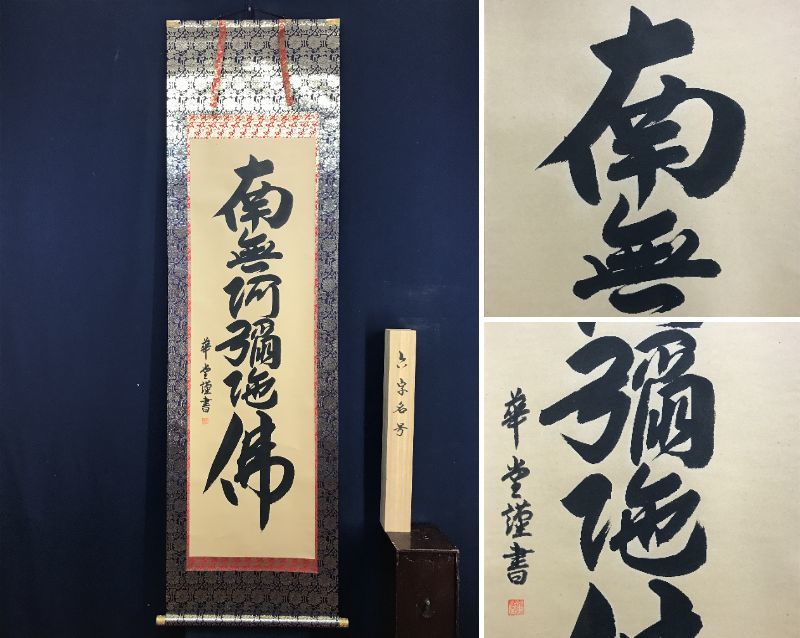 南無阿彌陀佛
華堂謹書
六字名号
南無
彌陀
華堂謹書